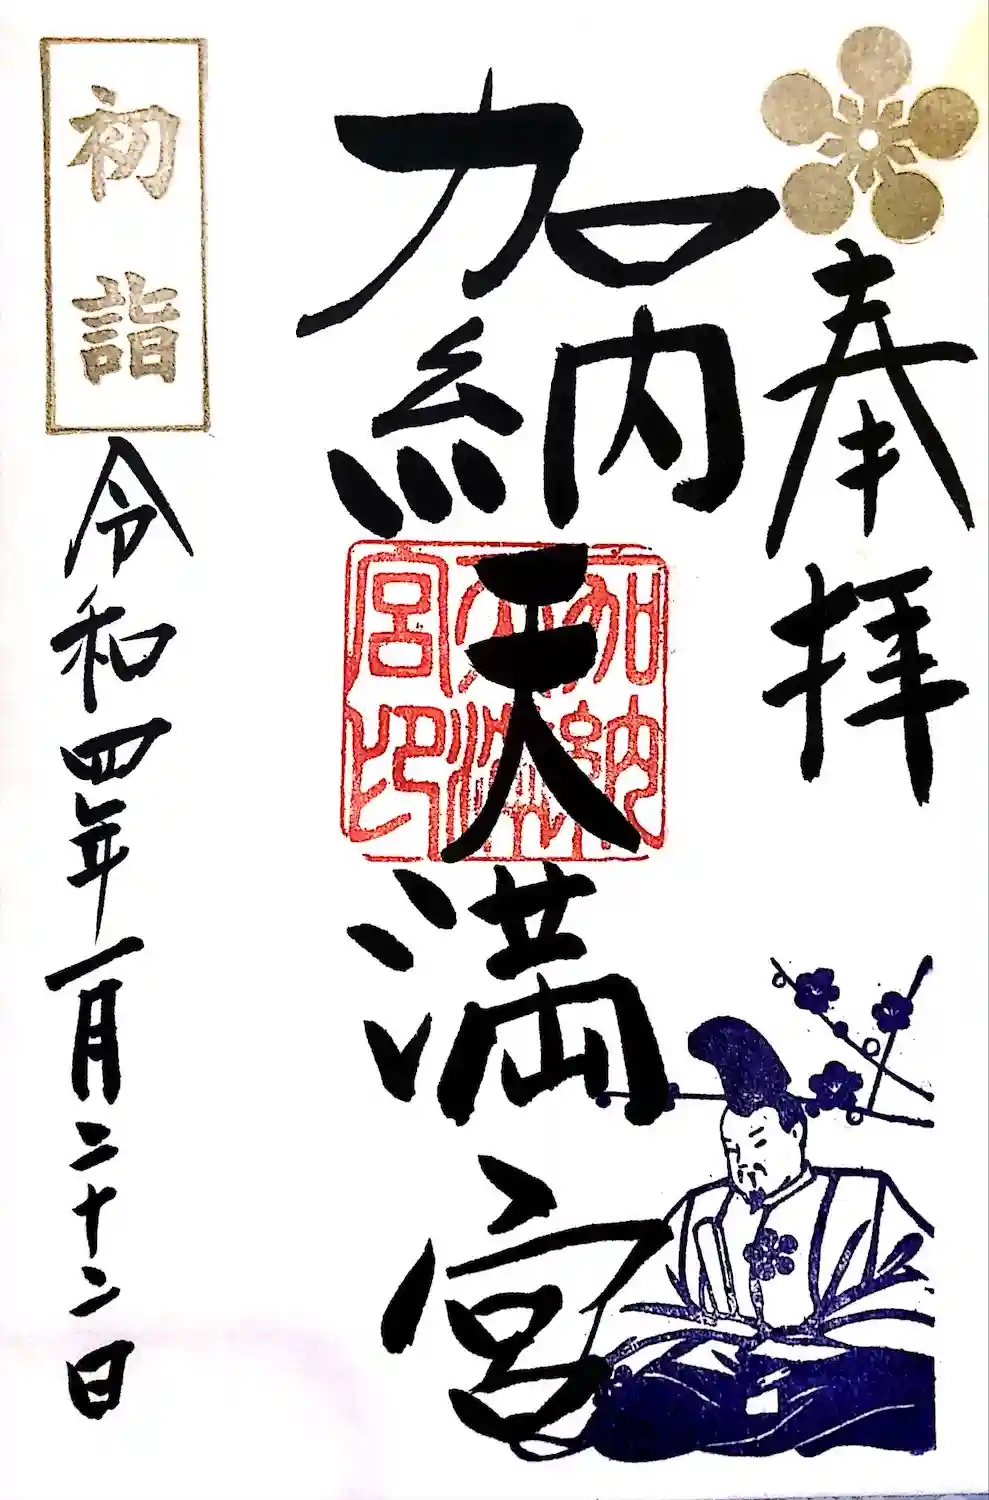 奉拝
加納天満宮
加納
天満
宮印
初詣
令和四年一月二十二日